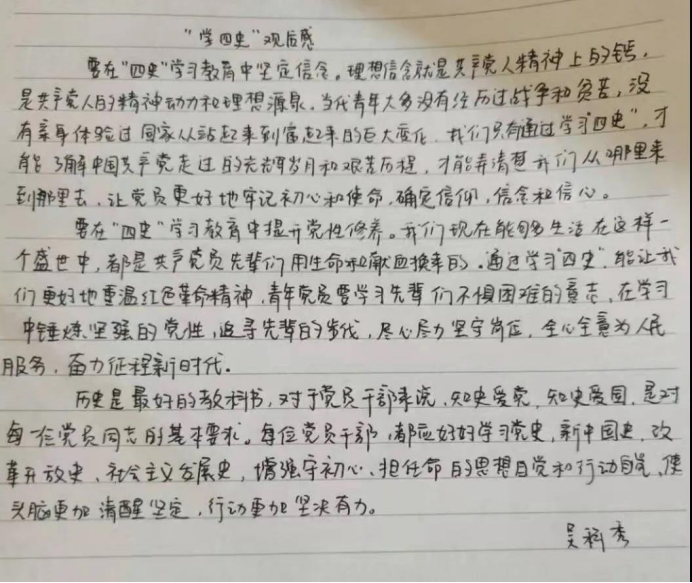 “学四史”观后感
要在“四史”学习教育中坚定信念。理想信念就是共产党人精神上的钙，
是共产党人的精神动力和理想源泉，当代青年大多没有经历过战争和贫苦，没
有亲身体验过国家从站起来到富起来的巨大变化，我们只有通过学习“四史”，才
能了解中国共产党走过的光辉岁月和艰苦历程，才能弄清楚我们从哪里来
到哪里去，让党员更好地牢记初心和使命，确定信仰，信念和信心。
要在“四史”学习教育中提升党性修养。我们现在能够生活在这样一
个盛世中，都是共产党员先辈们用生命和献血换来的。通过学习“四史”，能让我
们更好地重温红色革命精神，青年党员要学习先辈们不惧困难的意志，在学习
中锤炼坚强的党性，追寻先辈的步伐，尽心尽力坚守岗位，全心全意为人民
服务，奋力征程新时代。
历史是最好的教科书，对于党员干部来说，知史爱党，知史爱国，是对
每一位党员同志的基本要求。每位党员干部，都应好好学习党史，新中国史，改
革开放史，社会主义发展史，增强守初心、担任命的思想自觉和行动自觉，使
头脑更加清醒坚定，行动更加坚决有力。
吴科秀